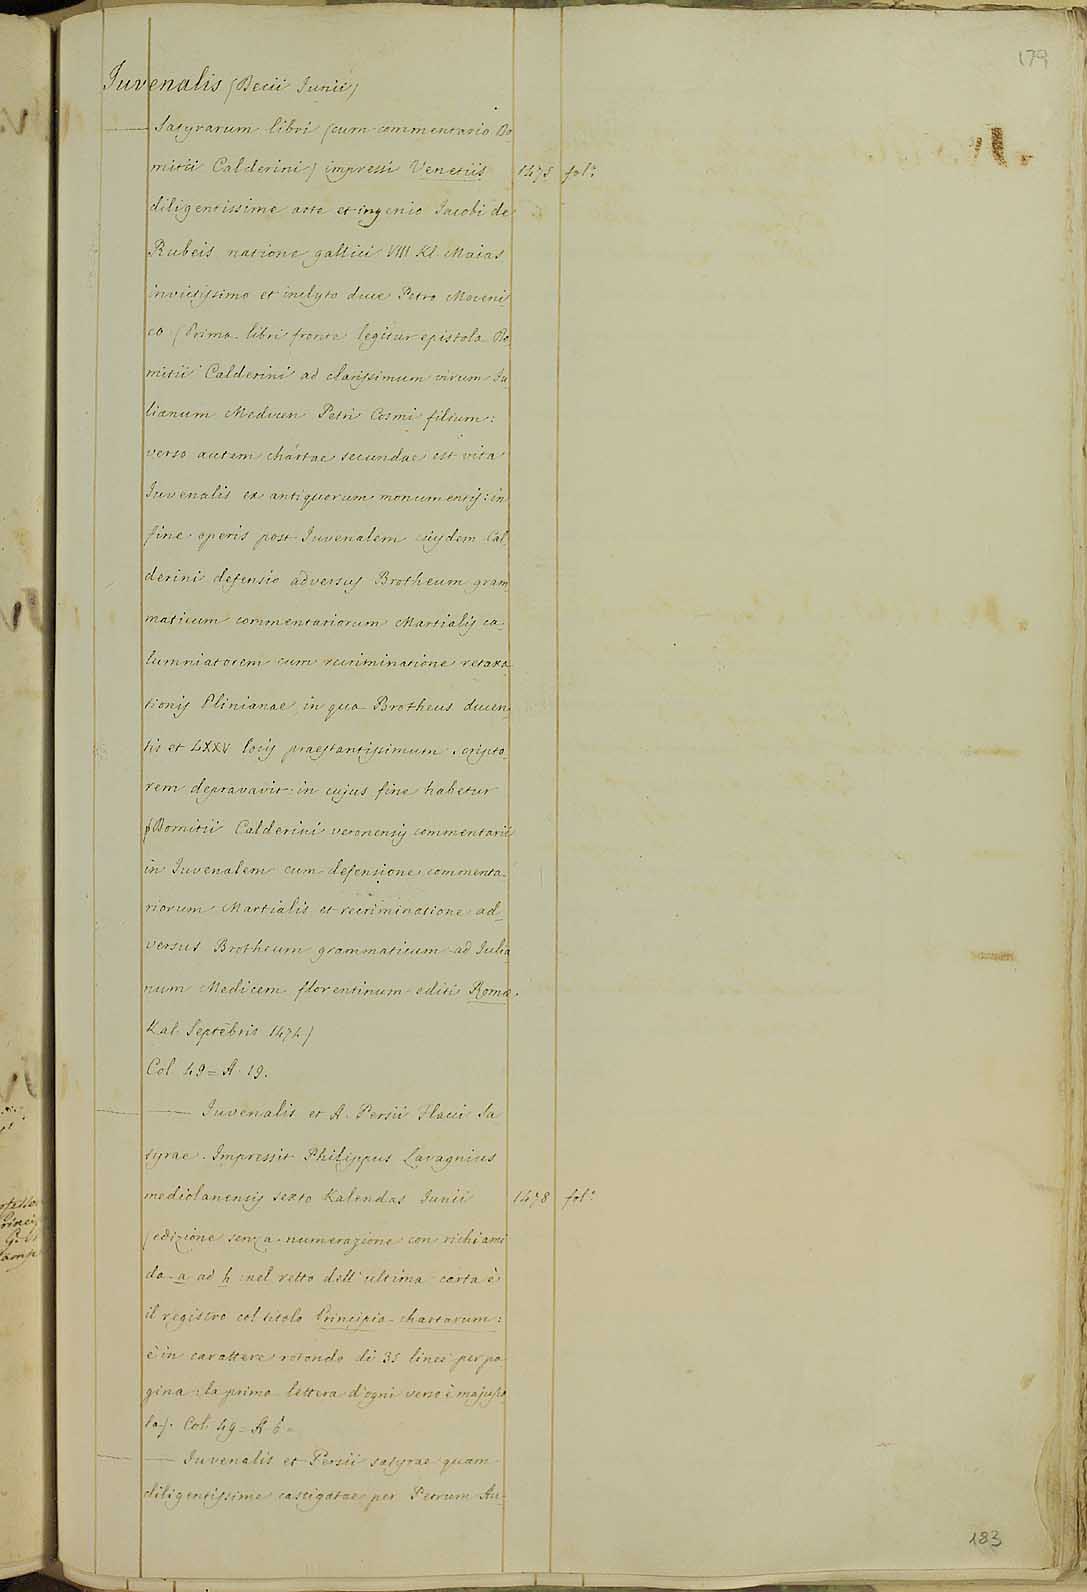 179
Juvenalis (Decii Junii)
— Satyrarum libri (cum commentario Do
mitii Calderini) impressi Venetiis 1475 fol.°
diligentissime arte et ingenio Jacobi de
Rubeis natione gallici VIII Kl. Maias
invictissimo et inclyto duce Petro Moceni
co (Prima libri fronte legitur epistola Do
mitii Calderini ad clarissimum virum Ju
lianum Medicen Petri Cosmi filium:
verso autem chartae secundae est vita
Juvenalis ex antiquorum monumentis: in
fine operis post Juvenalem eiusdem Cal
derini defensio adversus Brotheum gram
maticum commentariorum Martialis ca
lumniatorem cum recriminatione retaxa
tionis Plinianae, in qua Brotheus ducen
tis et LXXV locis praestantissimum scripto
rem depravavit: in cujus fine habetur
(Domitii Calderini veronensis commentarii
in Juvenalem cum defensione commenta
riorum Martialis et recriminatione ad
versus Brotheum grammaticum ad Julia
num Medicem florentinum editi Romae
Kal. Septēbris 1474)
Col. 49 = A. 19.
— Juvenalis et A. Persii Flacci Sa
tyrae. Impressit Philippus Lavagnius
mediolanensis sexto Kalendas Junii 1478 fol.°
(edizione senza numerazione con richiami
da a ad h: nel retto dell'ultima carta è
il registro col titolo Principia chartarum:
è in carattere rotondo di 35 linee per pa
gina: la prima lettera d'ogni verso è majusco
la). Col. 49 = A 6 =
— Juvenalis et Persii satyrae quam
diligentissime castigatae per Petrum Au-
183